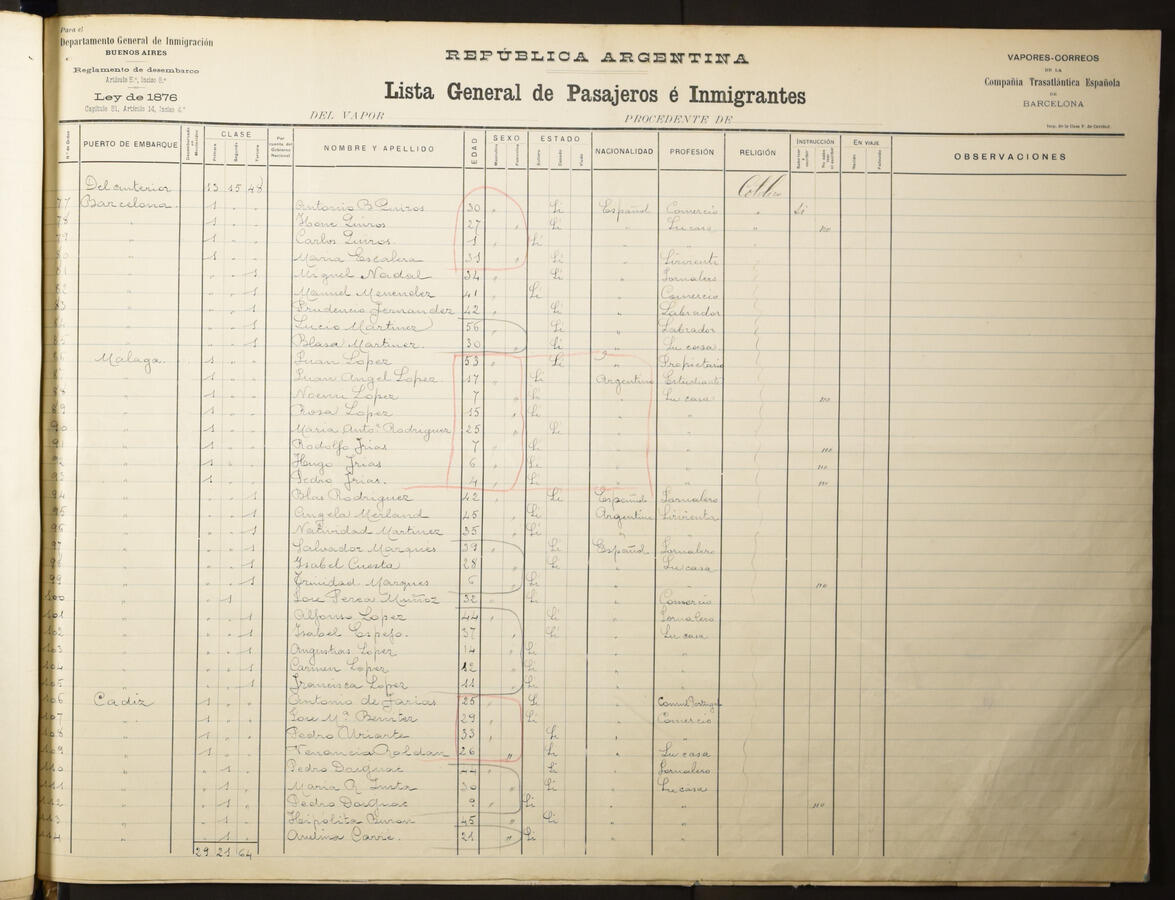 Para el
Departamento General de Inmigración
BUENOS AIRES
Reglamento de desembarco
Artículo 5.°, Inciso 8.°
Ley de 1876
Capítulo 31, Artículo 14, Inciso 4.°
REPÚBLICA ARGENTINA
Lista General de Pasajeros é Inmigrantes
DEL VAPOR PROCEDENTE DE
VAPORES-CORREOS
DE LA
Compañía Trasatlántica Española
DE
BARCELONA
N.° de Orden PUERTO DE EMBARQUE CLASE Primera Segunda Tercera NOMBRE Y APELLIDO EDAD SEXO Masculino Femenino ESTADO Soltero Casado Viudo NACIONALIDAD PROFESIÓN RELIGIÓN INSTRUCCIÓN EN VIAJE Nacido Fallecido OBSERVACIONES
Del anterior 13 15 48
77 Barcelona 1 Antonio B Quiros 30 " Si Español Comercio " Si
78 " 1 Quiros 27 " Si " Su casa " no
79 " 1 Carlos Quiros 1 " Si " "
80 " 1 Maria Escalera 31 " Si " Sirvienta
81 " 1 Miguel Nadal 34 " Si " Jornalero
82 " 1 Manuel Menendez 41 " Si " Comercio
83 " 1 Prudencio Fernandez 42 " Si " Labrador
84 " 1 Lucio Martinez 56 " Si " Labrador
85 " 1 Blasa Martinez 30 " Si " Su casa
86 Malaga 1 Juan Lopez 53 " Si " Propietario
87 " 1 Juan Angel Lopez 17 " Si Argentino Estudiante
88 " 1 Noemi Lopez 7 " Si " Su casa no
89 " 1 Rosa Lopez 15 " Si " "
90 " 1 Maria Ant.ª Rodriguez 25 " Si " "
91 " 1 Rodolfo Frias 7 " Si " " no
92 " 1 Hugo Frias 6 " Si " " no
93 " 1 Pedro Frias 4 " Si " " no
94 " 1 Blas Rodriguez 42 " Si Español Jornalero
95 " 1 Angela Merland 45 " Si Argentina Sirvienta
96 " 1 Natividad Martinez 35 " Si " "
97 " 1 Salvador Marques 39 " Si Español Jornalero
98 " 1 Isabel Cuesta 28 " Si " Su casa
99 " 1 Trinidad Marques 6 " Si " " no
100 " 1 Jose Perea Muñoz 32 " Si " Comercio
101 " 1 Alfonso Lopez 44 " Si " Jornalero
102 " 1 Isabel Espejo 37 " Si " Su casa
103 " 1 Angustias Lopez 14 " Si " "
104 " 1 Carmen Lopez 12 " Si " "
105 " 1 Francisca Lopez 11 " Si " "
106 Cadiz 1 Antonio de Farias 25 " Si " Consul Portugal
107 " 1 Jose M.ª Benitez 29 " Si " Comercio
108 " 1 Pedro Uriarte 33 " Si " "
109 " 1 Venancia Roldan 26 " Si " Su casa
110 " 1 Pedro Daignac 44 " Si " Jornalero
111 " 1 Maria R. 30 " Si " Su casa
112 " 1 Pedro Daignac 9 " Si " " no
113 " 1 Hipolita Buron 45 " Si " "
114 " 1 Avelina Carrie 21 " Si " "
29 21 64